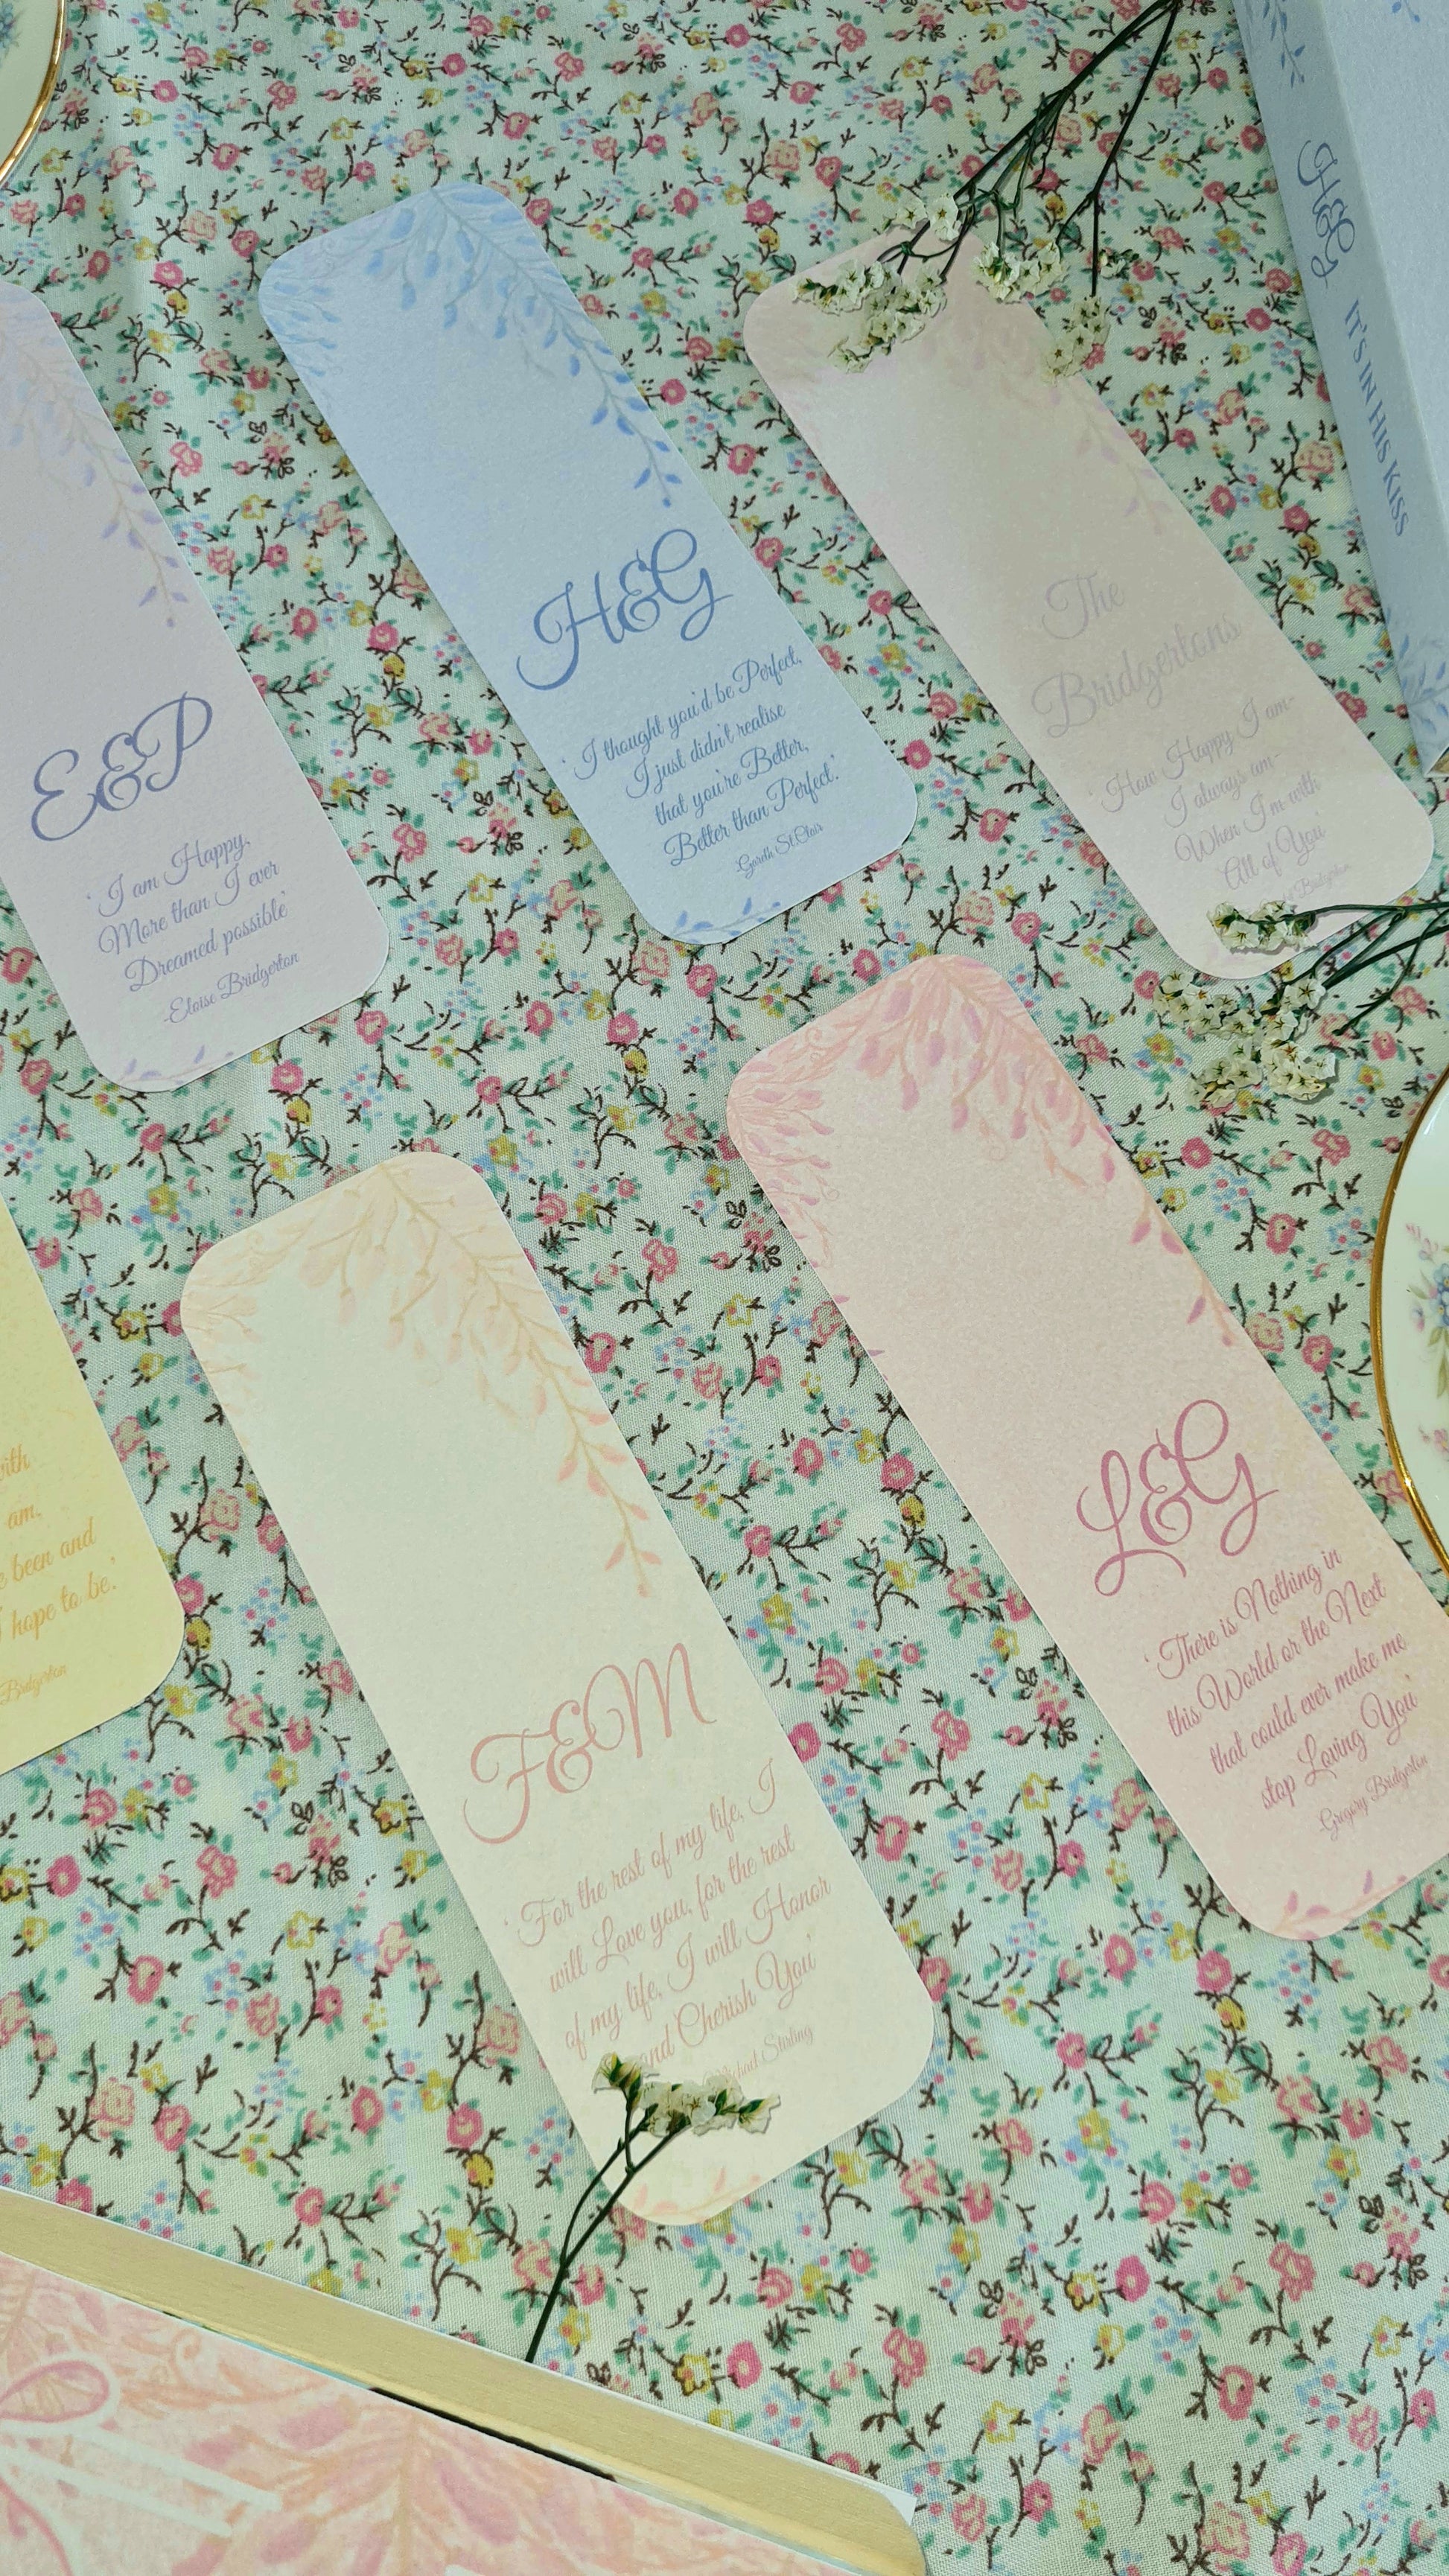 H&G IT'S IN HIS KISS
E&P
'I am Happy,
More than I ever
Dreamed possible'
-Eloise Bridgerton
H&G
'I thought you'd be Perfect,
I just didn't realise
that you're Better,
Better than Perfect.'
-Gareth St.Clair
The
Bridgertons
'How Happy I am-
I always am-
When I'm with
All of You'
Bridgerton
with
am.
been and
hope to be.'
Bridgerton
F&M
'For the rest of my life, I
will Love you, for the rest
of my life, I will Honor
and Cherish You'
Michael Stirling
L&G
'There is Nothing in
this World or the Next
that could ever make me
stop Loving You'
-Gregory Bridgerton